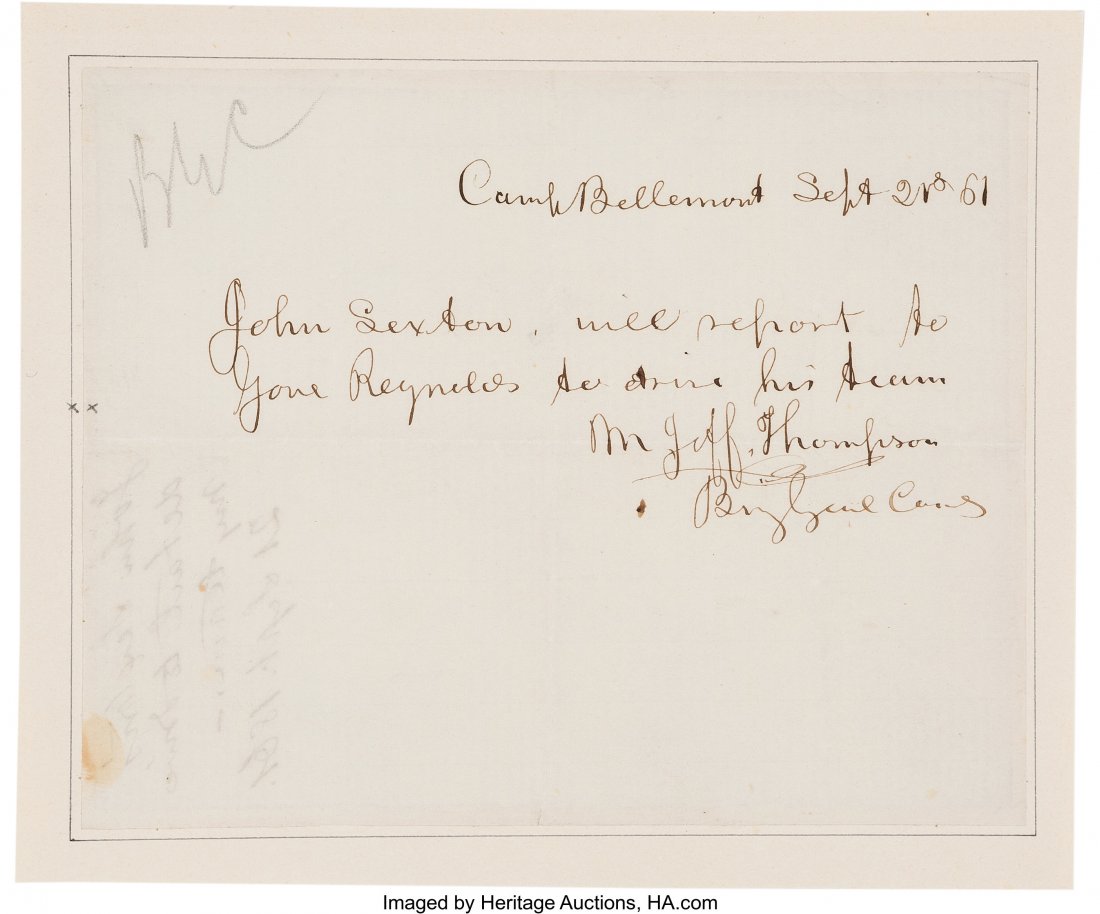 Camp Bellemont Sept 21st 61
John Sexton, will report to
Gove Reynolds to drive his team
M Jeff. Thompson
Brig Genl Comdg
Imaged by Heritage Auctions, HA.com